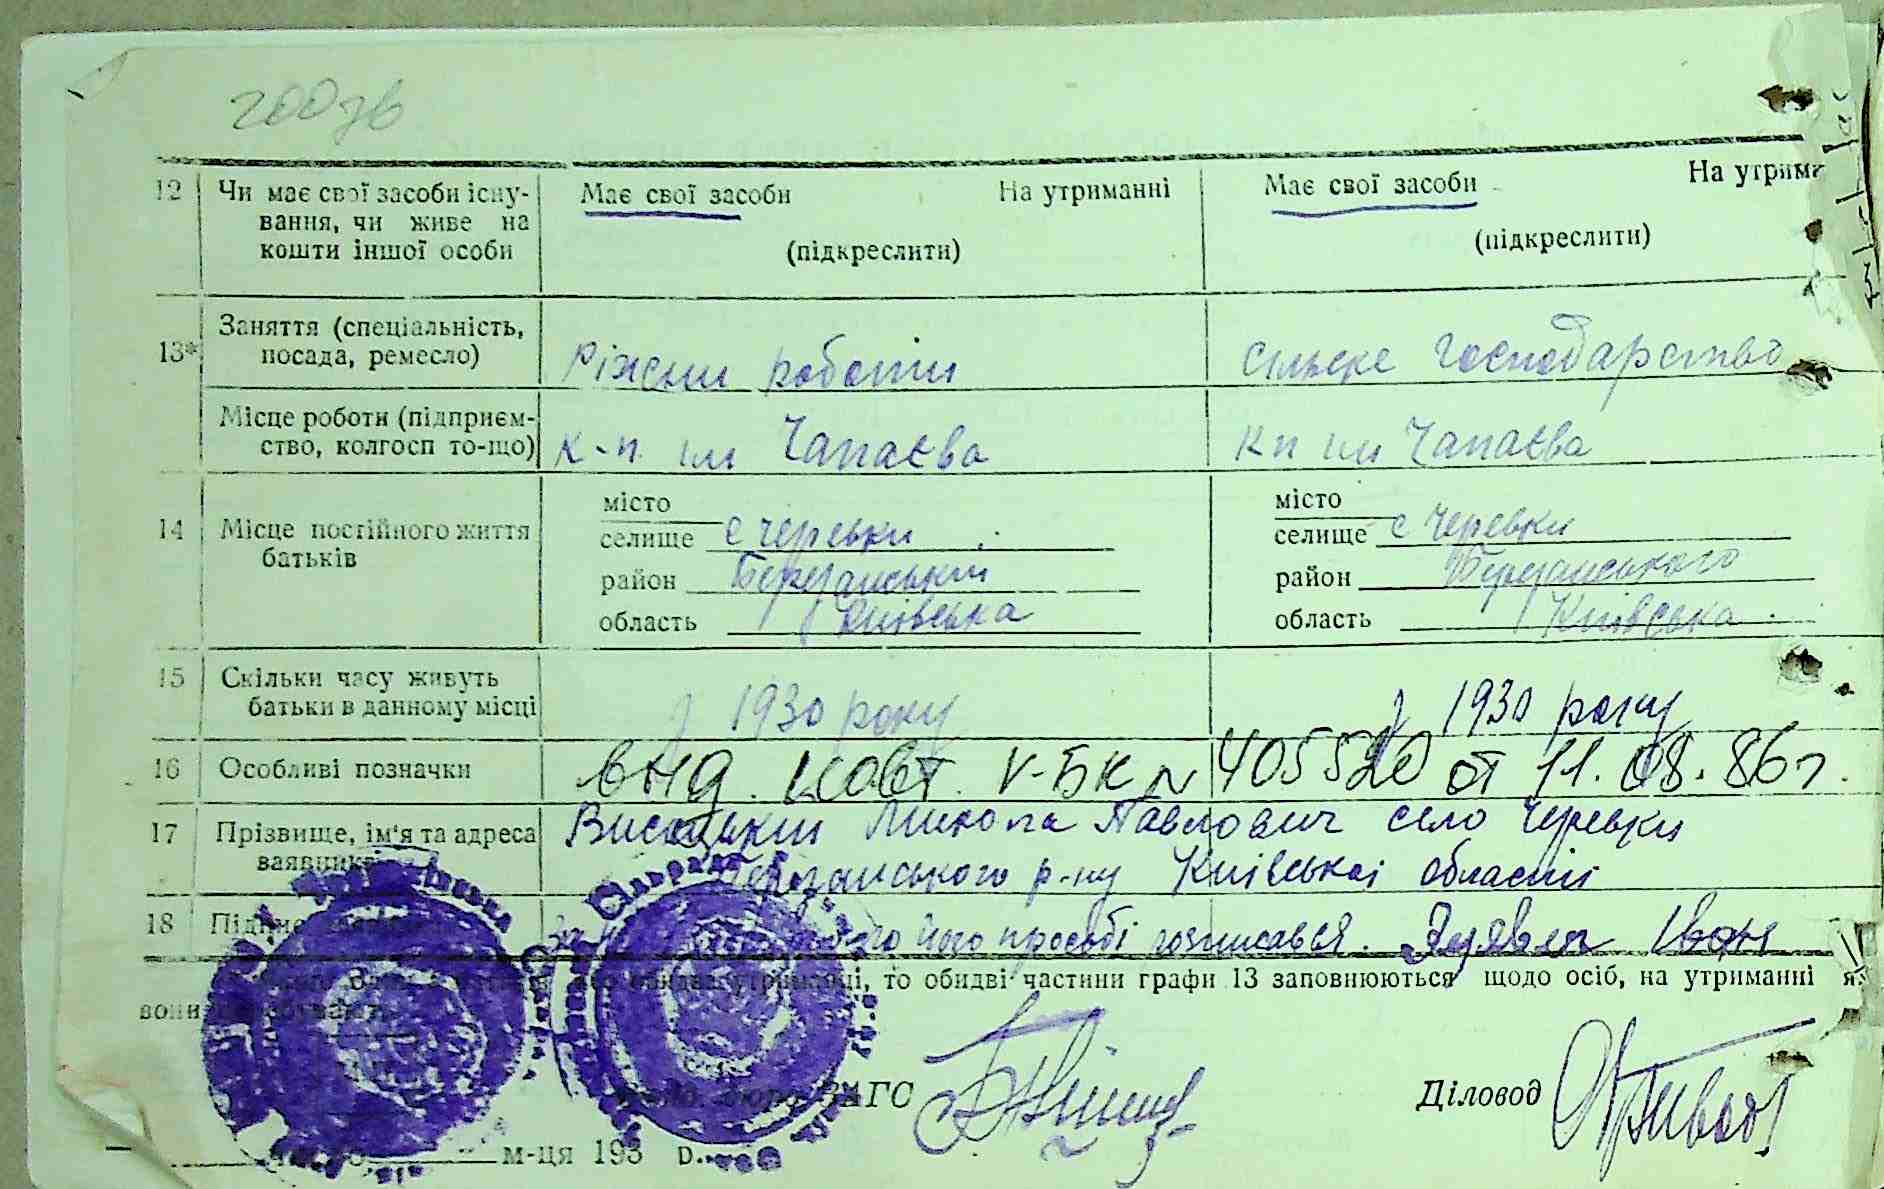 12 Чи має свої засоби існу- Має свої засоби На утриманні Має свої засоби На утрима
вання, чи живе на
кошти іншої особи (підкреслити) (підкреслити)
13* Заняття (спеціальність,
посада, ремесло) Ріжни роботи сільске господарство
Місце роботи (підприєм-
ство, колгосп то-що) К-п. ім Чапаєва Кп ім Чапаєва
місто місто
14 Місце постійного життя селище с Черевки селище с Черевки
батьків район Березанський район Березанського
область Київська область Київська
15 Скільки часу живуть
батьки в данному місці з 1930 року з 1930 року
16 Особливі позначки выд. V-БК № 405520 от 11.08.86г.
17 Прізвище, ім'я та адреса Микола Павлович село Черевки
заявника Березанського р-ну Київської області
18 його просьбі росписався. Іван
утриманці, то обидві частини графи 13 заповнюються щодо осіб, на утриманні
вони
бюро ЗАГС Діловод
м-ця 193 р.